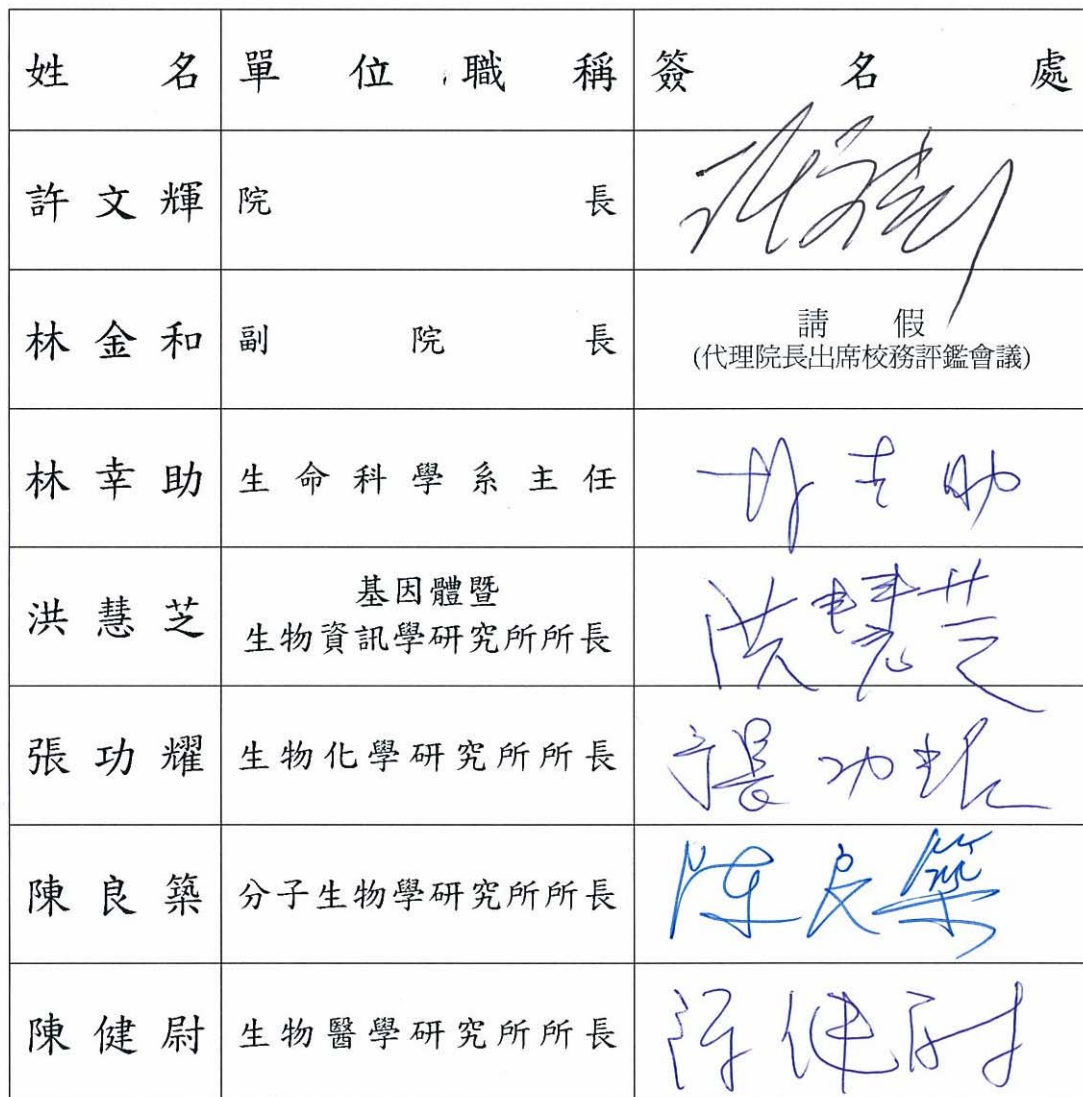 姓名 單位職稱 簽名處
許文輝 院長 許文輝
林金和 副院長 請假
(代理院長出席校務評鑑會議)
林幸助 生命科學系主任 林幸助
洪慧芝 基因體暨
生物資訊學研究所所長 洪慧芝
張功耀 生物化學研究所所長 張功耀
陳良築 分子生物學研究所所長 陳良築
陳健尉 生物醫學研究所所長 陳健尉